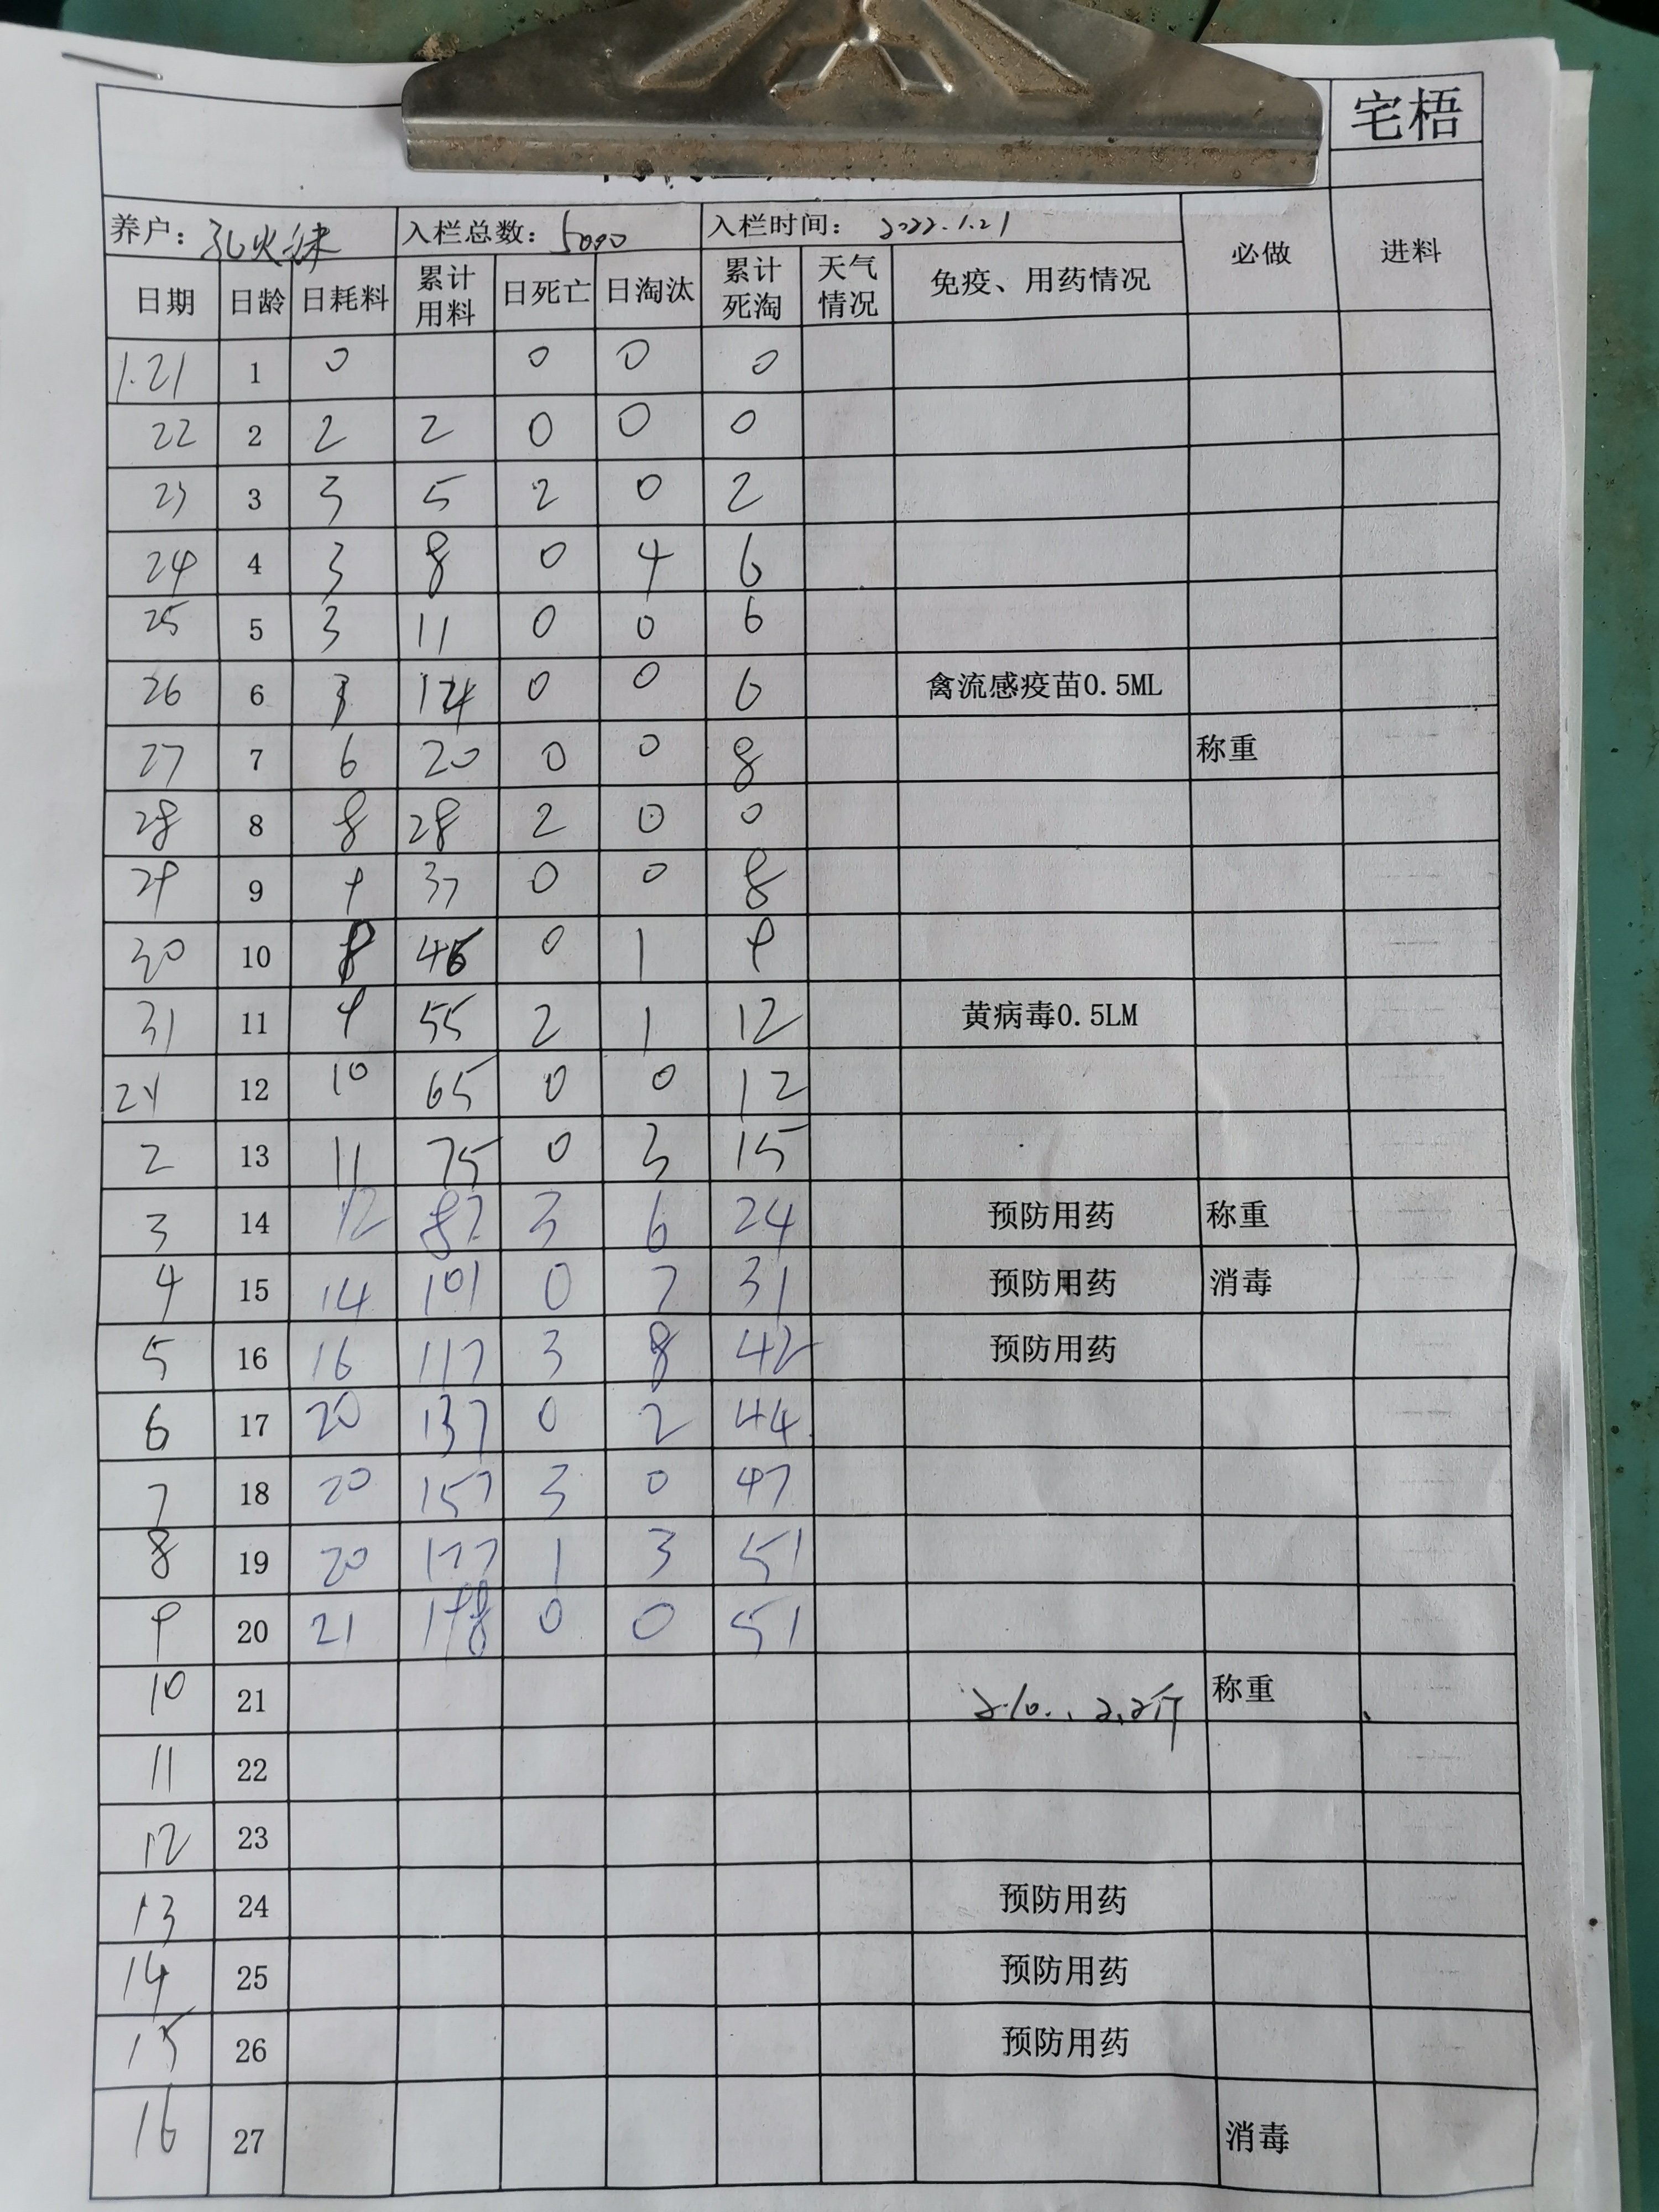 宅梧
养户：孔火 入栏总数：5000 入栏时间：2022.1.21 必做 进料
日期 日龄 日耗料 累计用料 日死亡 日淘汰 累计死淘 天气情况 免疫、用药情况
1.21 1 0 0 0 0
22 2 2 2 0 0 0
23 3 3 5 2 0 2
24 4 3 8 0 4 6
25 5 3 11 0 0 6
26 6 3 14 0 0 6 禽流感疫苗0.5ML
27 7 6 20 0 0 8 称重
28 8 8 28 2 0 0
29 9 9 37 0 0 8
30 10 8 46 0 1 9
31 11 9 55 2 1 12 黄病毒0.5LM
12 10 65 0 0 12
2 13 11 75 0 3 15
3 14 12 87 3 6 24 预防用药 称重
4 15 14 101 0 7 31 预防用药 消毒
5 16 16 117 3 8 42 预防用药
6 17 20 137 0 2 44
7 18 20 157 3 0 47
8 19 20 177 1 3 51
9 20 21 198 0 0 51
10 21 2.10.. 2.2斤 称重
11 22
12 23
13 24 预防用药
14 25 预防用药
15 26 预防用药
16 27 消毒